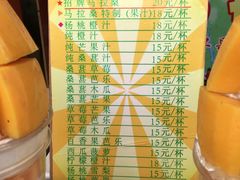 招牌马拉桑 20元/杯
马拉桑特制(果汁)18元/杯
杨桃橙汁 18元/杯
纯橙汁 18元/杯
纯芒果汁 15元/杯
纯桑葚汁 15元/杯
桑葚草莓 15元/杯
桑葚芭乐 15元/杯
桑葚木瓜 15元/杯
桑葚芒果 15元/杯
草莓芒果 15元/杯
草莓芭乐 15元/杯
草莓木瓜 15元/杯
百香果芭乐 15元/杯
西瓜菠萝 15元/杯
柠檬橙汁 18元/杯
杨桃雪梨 15元/杯